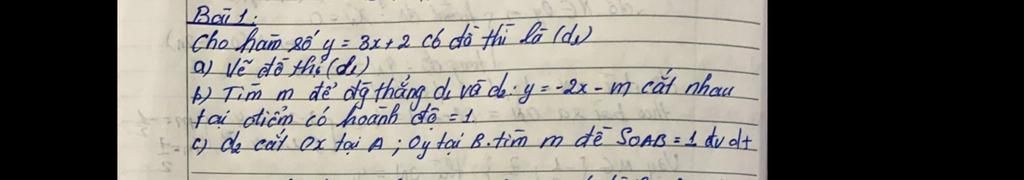 Bài 1:
Cho hàm số y = 3x + 2 có đồ thị là (d₁)
a) Vẽ đồ thị (d₁)
b) Tìm m để đg thẳng d₁ và d₂: y = -2x - m cắt nhau
tại điểm có hoành độ = 1.
c) d₂ cắt Ox tại A ; Oy tại B. tìm m để SOAB = 1 đv dt